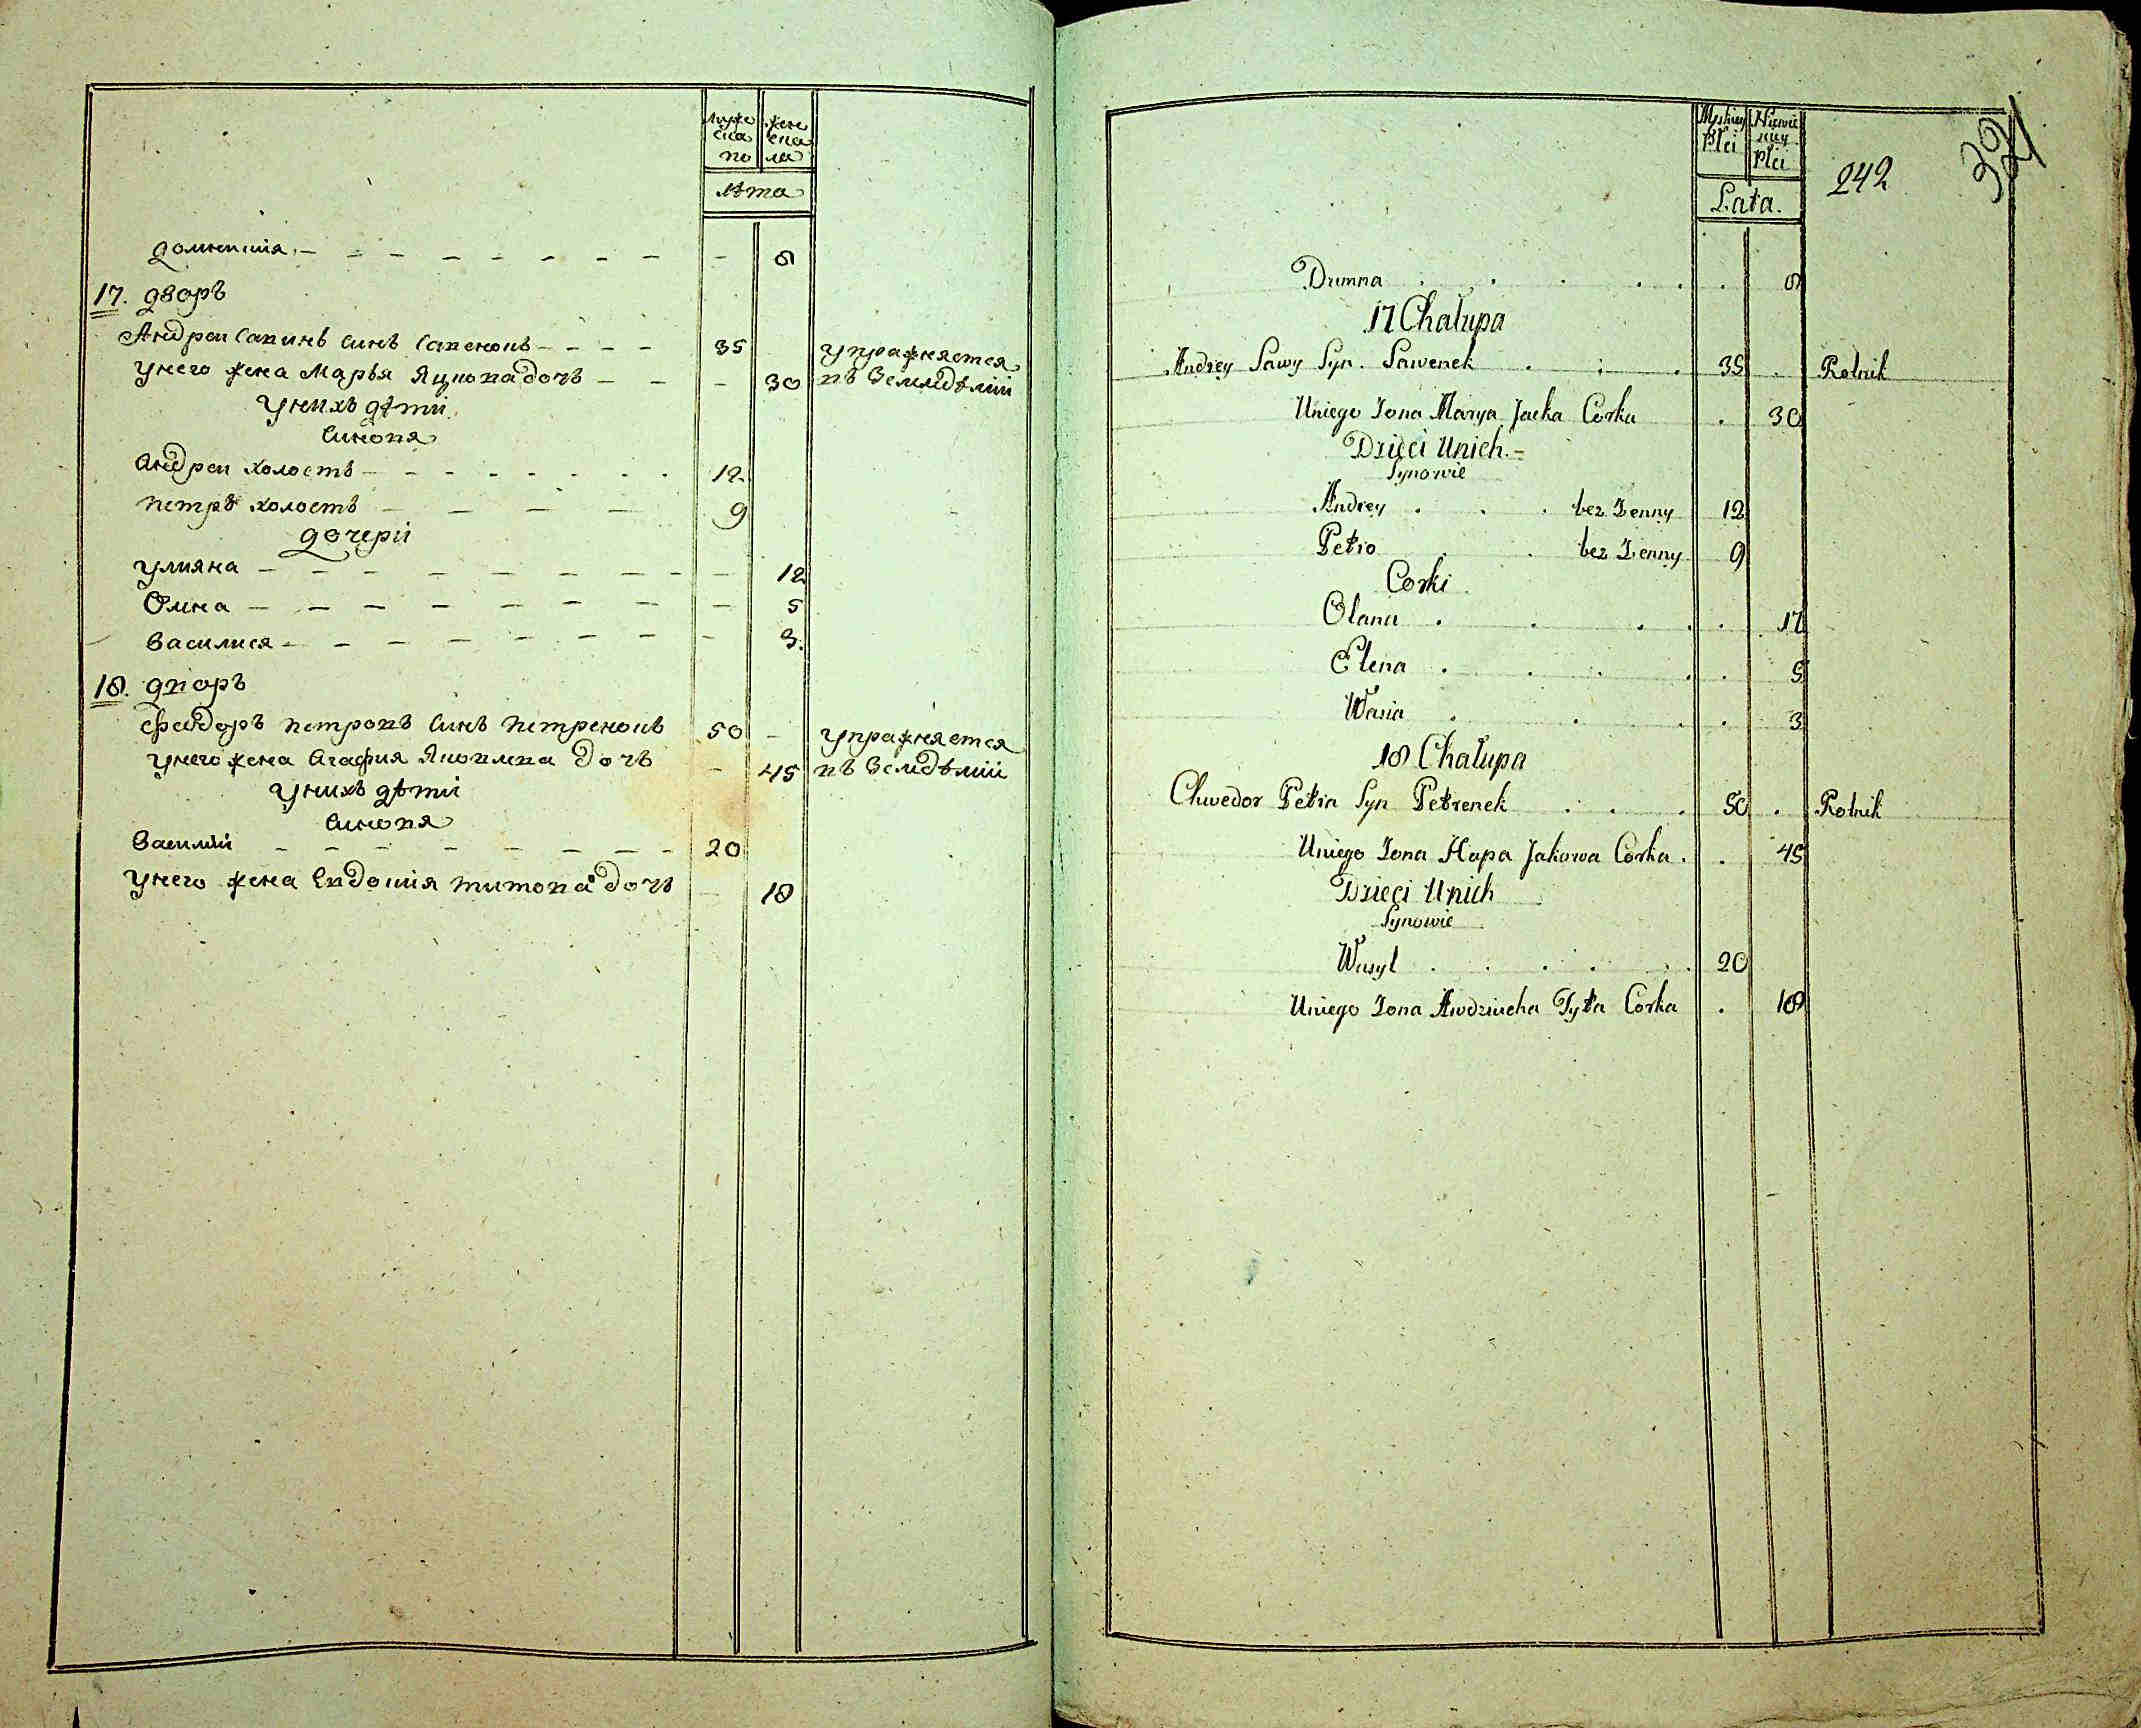 муже
ска
по
жен
ска
ла
лѣта
домникия 8
17. дворъ
Андреи Савинъ синъ Савеновъ 35 упражняется
унего жена Марья Яцковадочъ 30 въ Земледѣлiи
унихъ дѣти
Синовя
Андреи холостъ 12
петръ холостъ 9
дочери
улияна 12
Олена 5
Василися 3.
18. дворъ
Феидоръ петровъ синъ петреновъ 50 упражняется
унего жена Агафия Яковлева дочъ 45 въ Земдѣлiи
унихъ дѣти
синовя
Василiй 20
унего жена Евдокия титова дочъ 18
Mȩskiey Płci
Niewie sciey Płci
Lata.
242
39
Dumna 8
17 Chałupa
Andrey Sawy Syn. Sawenek 35 Rolnik
Uniego Zona Marya Jacka Corka 30
Dzieci Unich.
Synowie
Andrey bez Zenny 12
Petro bez Zenny 9
Corki
Olana 12
Elena 5
Wasia 3
18 Chałupa
Chwedor Petra Syn Petrenek 50 Rolnik
Uniego Zona Hapa Jakowa Corka 45
Dzieci Unich
Synowie
Wasyl 20
Uniego Zona Awdziucha Tyta Corka 18